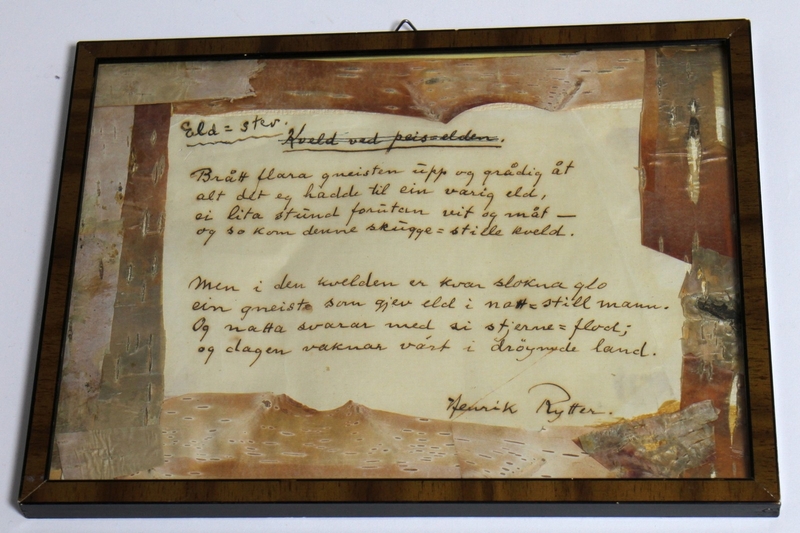 Eld=stev.
Kveld ved peis=elden.
Brått flara gneisten upp og grådig åt
alt det eg hadde til ein varig eld,
ei lita stund forutan vit og måt —
og so kom denne skugge=stille kveld.
Men i den kvelden er kvar slokna glo
ein gneiste som gjev eld i natt=still mann.
Og natta svarar med si stjerne=flod;
og dagen vaknar vårt i drøymde land.
Henrik Rytter.